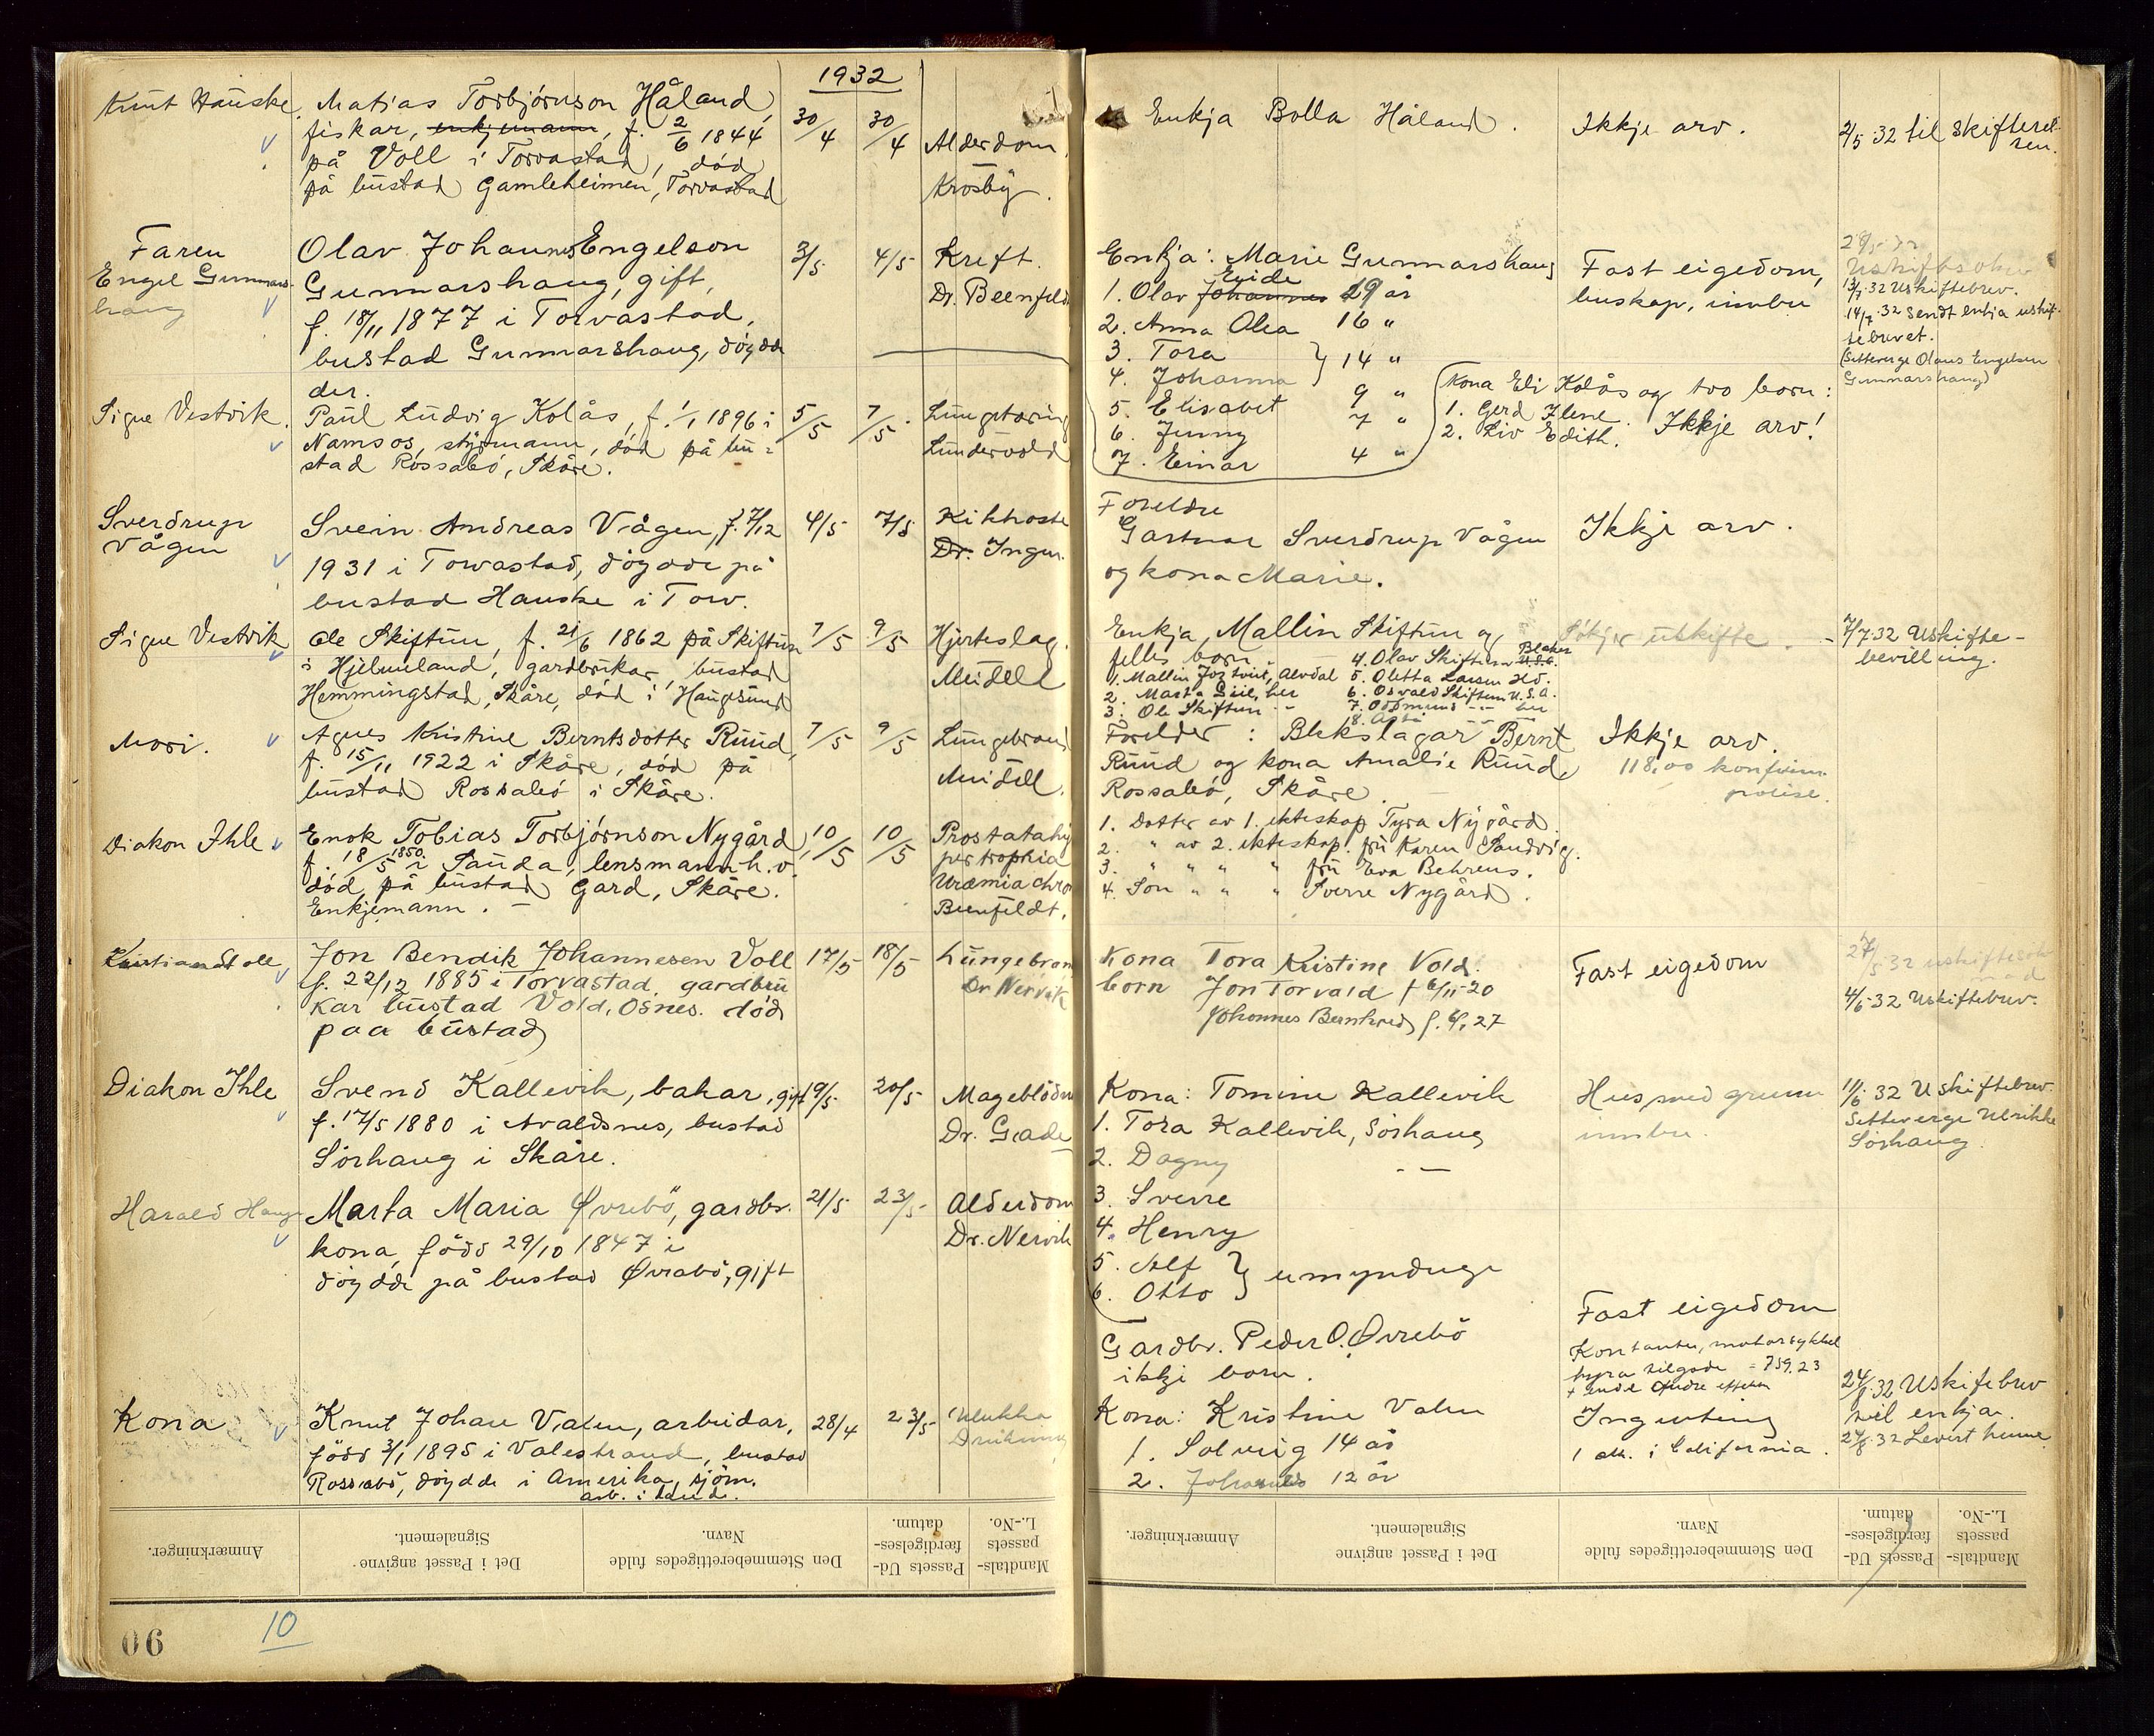 1932
Knut Hauske
Matias Torbjörnson Håland,
fiskar, enkjemann, f. 2/6 1844
på Voll i Torvastad, död
på bustad Gamleheimen, Torvastad
30/4
30/4
Alderdom.
Krosby.
Enkja Bolla Håland.
Ikkje arv.
2/5 32 til skifteret-
ten.
Faren
Engel Gunnars-
haug
Olav Johannes Engelson
Gunnarshaug, gift,
f. 18/11 1877 i Torvastad,
bustad Gunnarshaug, döydde
der.
3/5
4/5
Kreft.
Dr. Beenfeldt
Enkja: Marie Gunnarshaug
Eide
1. Olav Johannes 29 år
2. Anna Olea 16 "
3. Tora
4. Johanna } 14 "
5. Elisabet 9 "
6. Jenny 7 "
7. Einar 4 "
Fast eigedom,
buskap, innbu
13/7 32 Uskiftebrev.
14/7 32 sendt enkja uskif-
tebrevet.
(Setteverge Olaus Engelsen
Gunnarshaug)
Signe Vestvik.
Paul Ludvig Kolås, f. 1/1 1896 i
Namsos, styrmann, död på bu-
stad Rossabö, Skåre.
5/5
7/5
Lungetæring
Lundervold
Kona Eli Kolås og tvo born:
1. Gerd Ilene.
2. Liv Edith. Ikkje arv!
Sverdrup
Vågen
Svein Andreas Vågen, f. 7/12
1931 i Torvastad, döydde på
bustad Hauske i Torv.
4/5
7/5
Kikhoste
Dr. Ingen.
Foreldre
Gartnar Sverdrup Vågen
og kona Marie.
Ikkje arv.
Signe Vestvik
Ole Skiftun, f. 21/6 1862 på Skiftun
i Hjelmeland, gardbrukar, bustad
Hemmingstad, Skåre, död i Haugesund
7/5
9/5
Hjerteslag.
Meidell
Enkja, Mallin Skiftun og
felles born.
1. Mallin, Alvdal
2. Marta, her
3. Ole Skiftun - " -
4. Olav Skiftun
5. Oletta Larsen Hd.
6. Osvald Skiftun U.S.A.
7. Oddmund - " - her
8.
Søkjer uskifte.
7/7 32 Uskifte-
bevilling.
Mori.
Agnes Kristine Berntsdotter Ruud,
f. 15/11 1922 i Skåre, död på
bustad Rossabö i Skåre.
7/5
9/5
Lungebrand
Meidell.
Forelder: Blekslagar Bernt
Ruud og kona Amalie Ruud,
Rossabö, Skåre.
Ikkje arv.
118,00 konfirm.
polise.
Diakon Ihle
Enok Tobias Torbjörnson Nygård,
f. 18/5 1850 i Sauda, lensmann h.v.
död på bustad Gard, Skåre.
Enkjemann. -
10/5
10/5
Prostatahy
pertrophia
Uræmia chro
Beenfeldt.
1. Dotter av 1. ekteskap Tyra Nygård.
2. " av 2. ekteskap. fru Karen Sandvig.
3. " " " " fru Eva Behrens.
4. Son " " " Sverre Nygård.
Kristian Stolle
Jon Bendik Johannesen Voll
f. 22/12 1885 i Torvastad gardbru
kar bustad Vold, Osnes. död
paa bustad
17/5
18/5
Lungebran
Dr Nervik
Kona Tora Kristine Vold.
born Jon Torvald f 6/11-20
Johannes Bernhard f. 6/1 27
Fast eigedom
4/6-32 Uskiftebrev.
Diakon Ihle
Svend Kallevik, bakar, gift
f. 17/5 1880 i Avaldsnes, bustad
Sörhaug i Skåre.
19/5
20/5
Mageblödn
Dr. Grade
Kona: Tomine Kallevik
1. Tora Kallevik, Sörhaug
2. Dagny - " -
3. Sverre
4. Henry
5. Alf
6. Otto } umyndige
Hus med grunn
innbu.
11/6 32 Uskiftebrev.
Setteverge Ulrikke
Sörhaug.
Harald Hauge
Marta Maria Øvrebö, gardbr.
kona, född 29/10 1847 i
döydde på bustad Øvrabö, gift
21/5
23/5
Alderdom
Dr. Nervik
Gardbr. Peder O. Øvrebö
ikkje born.
Fast eigedom
Kona
Knut Johan Valen, arbeidar,
född 3/1 1895 i Valestrand, bustad
Rossabö, döydde i Amerika, sjöm.
arb. i land.
28/4
23/5
Ulukke
Drukning
Kona: Kristine Valen
1. Solveig 14 år
2. Johannes 12 år
Kontanter, motorsykkel
hyra tilgode = 759,23
+ andre effekter
Ingenting
1 i California.
24/8 32 Uskiftebrev
til enkja.
27/8 32 Levert henne
Anmærkninger.
Det i Passet angivne
Signalement.
Den Stemmeberettigedes fulde
Navn.
Passets Ud-
færdigelses-
datum.
Mandtals-
passets
L.-No.
Anmærkninger.
Det i Passet angivne
Signalement.
Den Stemmeberettigedes fulde
Navn.
Passets Ud-
færdigelses-
datum.
Mandtals-
passets
L.-No.
90
10